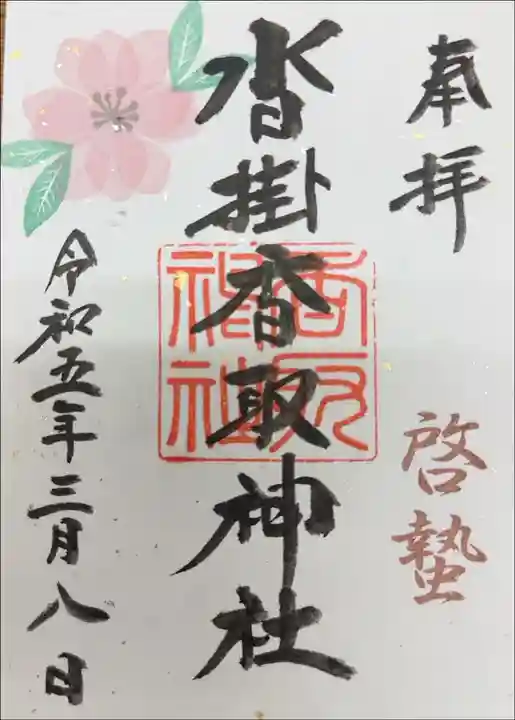 奉拝
啓蟄
沓掛香取神社
香取神社
令和五年三月八日